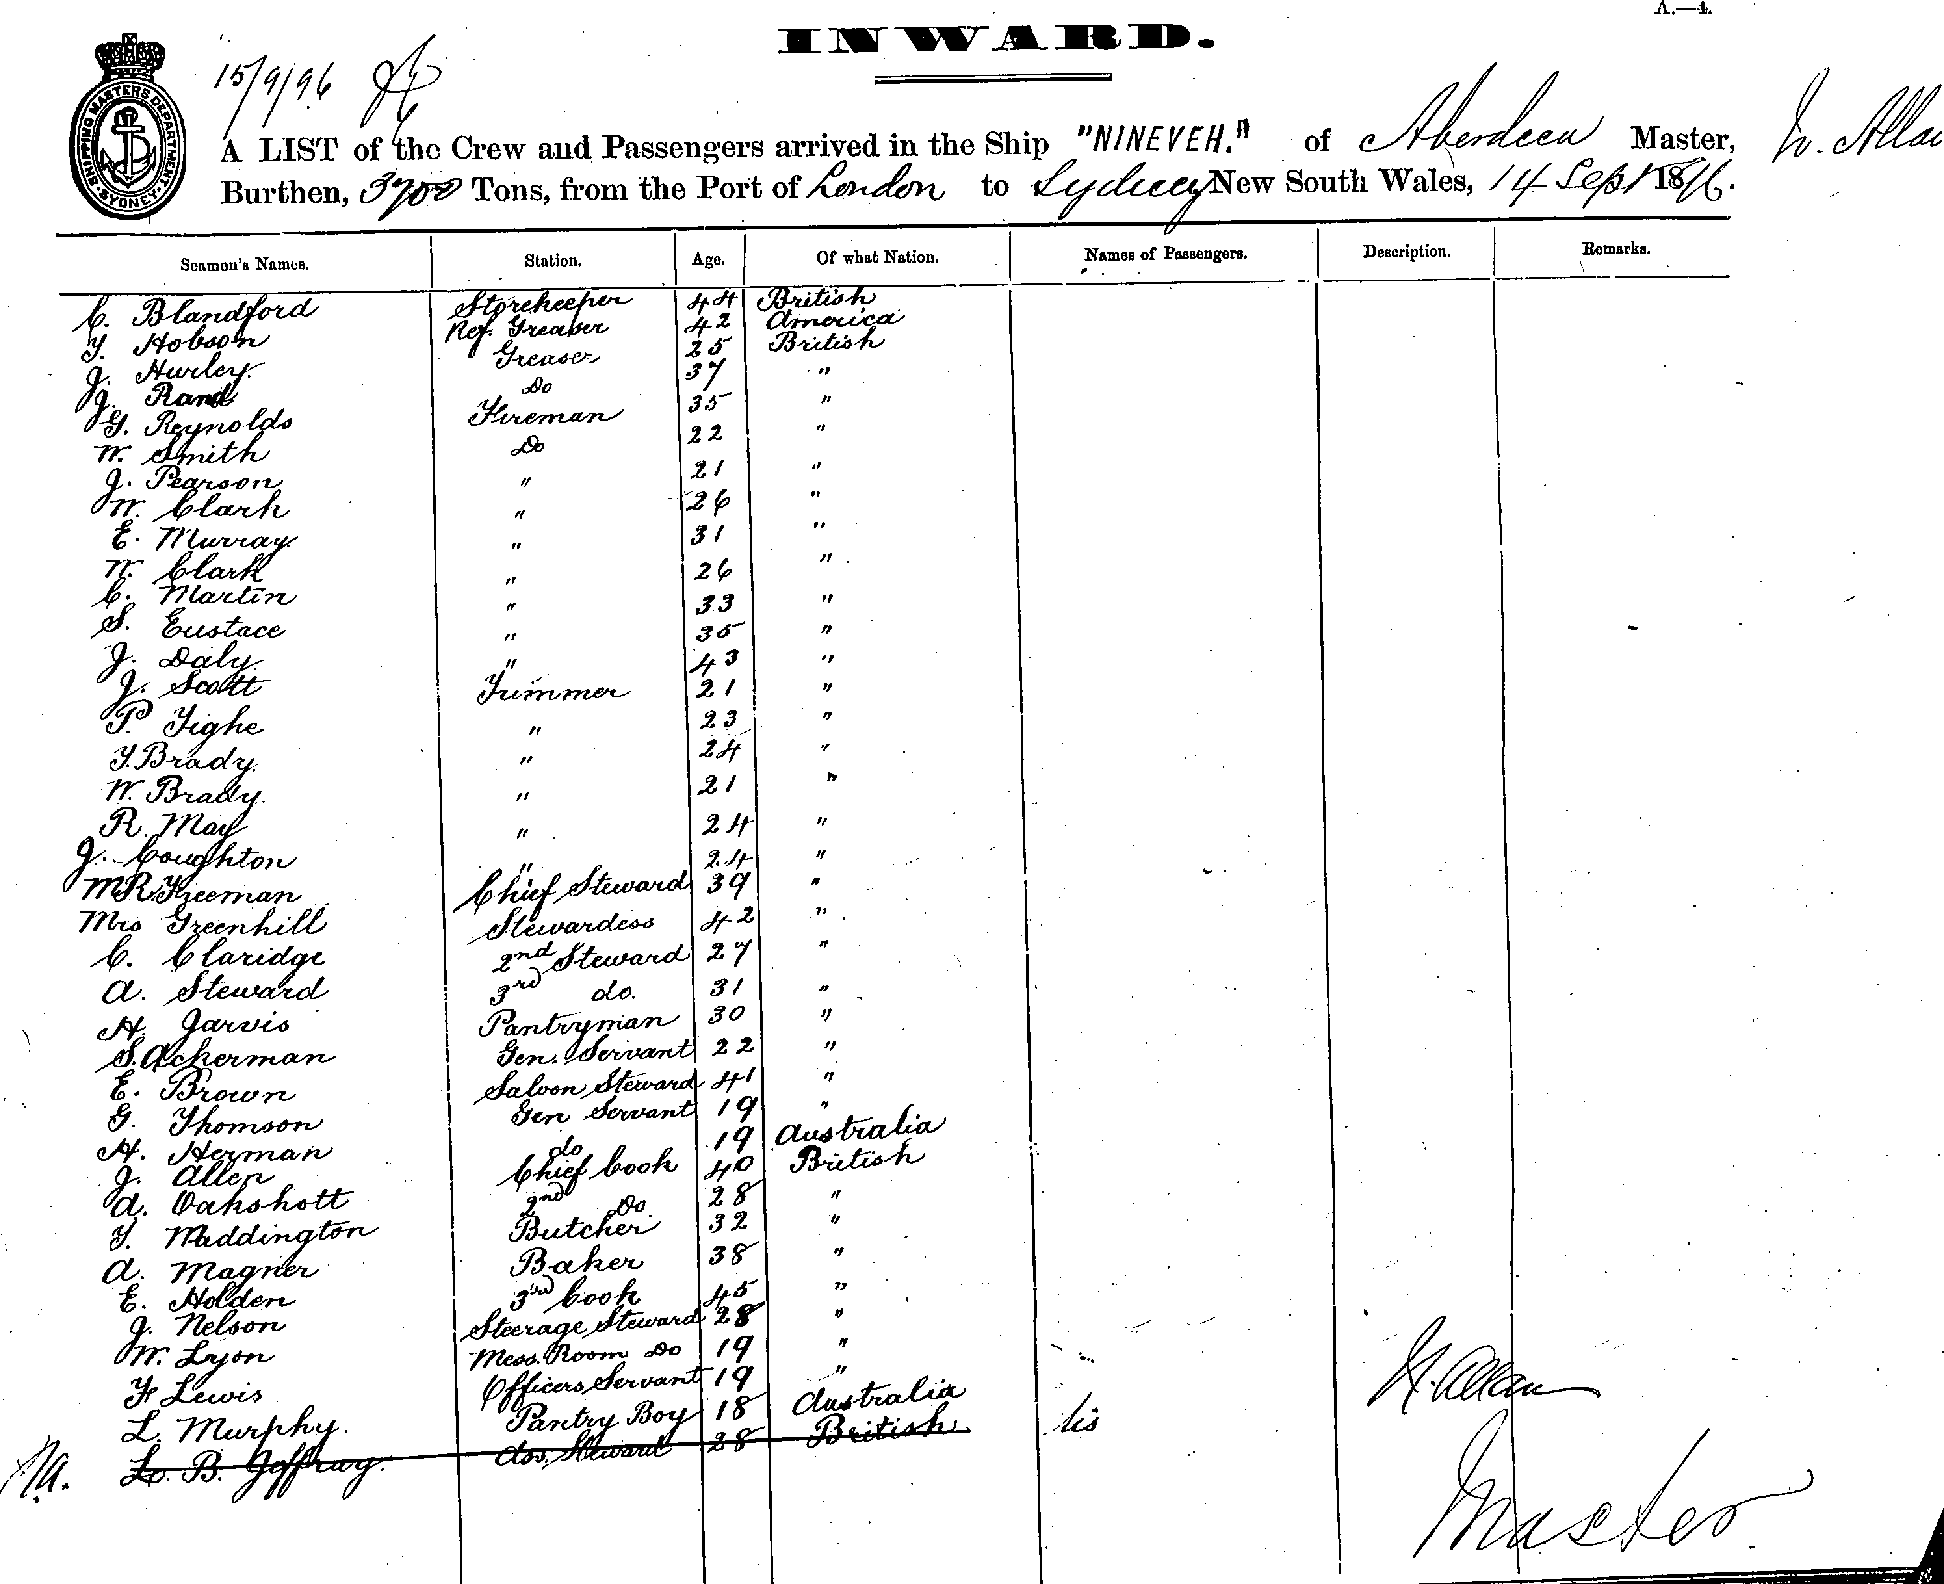 A.—4.
INWARD.
15/9/96
SHIPPING MASTERS DEPARTMENT. SYDNEY.
A LIST of the Crew and Passengers arrived in the Ship "NINEVEH." of Aberdeen Master,
Burthen, 3700 Tons, from the Port of London to Sydney New South Wales, 14 Sept 1896.
Seamen's Names. Station. Age. Of what Nation. Names of Passengers. Description. Remarks.
C. Blandford Storekeeper 44 British
T. Hobson Ref. Greaser 42 America
J. Hurley Greaser 25 British
J. Rand Do 37 "
G. Reynolds Fireman 35 "
W. Smith Do 22 "
J. Pearson " 21 "
W. Clark " 26 "
E. Murray " 31 "
W. Clark " 26 "
C. Martin " 33 "
S. Eustace " 35 "
J. Daly " 43 "
J. Scott Trimmer 21 "
P. Tighe " 23 "
T. Brady " 24 "
W. Brady " 21 "
R. May " 24 "
J. Coughton " 24 "
M R Freeman Chief Steward 39 "
Mrs Greenhill Stewardess 42 "
C. Claridge 2nd Steward 27 "
A. Steward 3rd do. 31 "
H. Jarvis Pantryman 30 "
S. Ackerman Gen. Servant 22 "
E. Brown Saloon Steward 41 "
G. Thomson Gen Servant 19 "
H. Herman do 19 Australia
J. Allen Chief Cook 40 British
A. Oakshott 2nd Do 28 "
T. Maddington Butcher 32 "
A. Magner Baker 38 "
E. Holden 3rd Cook 45 "
J. Nelson Steerage Steward 28 "
W. Lyon Mess. Room Do 19 "
F Lewis Officers Servant 19 "
L. Murphy. Pantry Boy 18 Australia
B. Geffray. Ass. Steward 28 British
Master